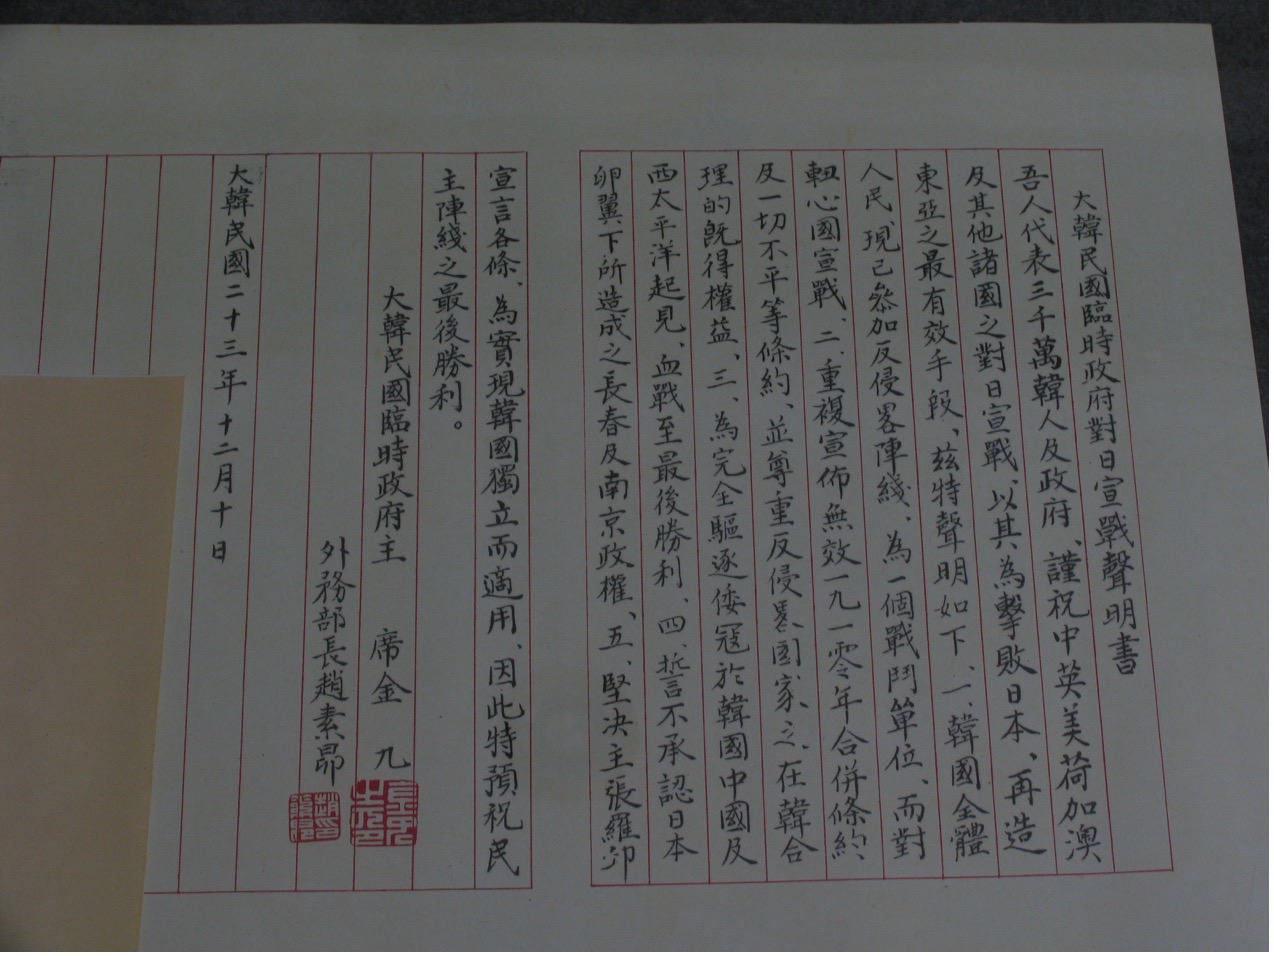 大韓民國臨時政府對日宣戰聲明書
吾人代表三千萬韓人及政府、謹祝中英美荷加澳
及其他諸國之對日宣戰、以其為擊敗日本、再造
東亞之最有效手段、茲特聲明如下、一、韓國全體
人民、現已參加反侵畧陣綫、為一個戰鬥單位、而對
軸心國宣戰、二、重複宣佈無效一九一零年合併條約、
及一切不平等條約、並尊重反侵畧國家之、在韓合
理的既得權益、三、為完全驅逐倭寇於韓國中國及
西太平洋起見、血戰至最後勝利、四、誓不承認日本
卵翼下所造成之長春及南京政權、五、堅決主張羅卯
宣言各條、為實現韓國獨立而適用、因此特預祝民
主陣綫之最後勝利。
大韓民國臨時政府主 席金 九
外務部長趙素昂
大韓民國二十三年十二月十日